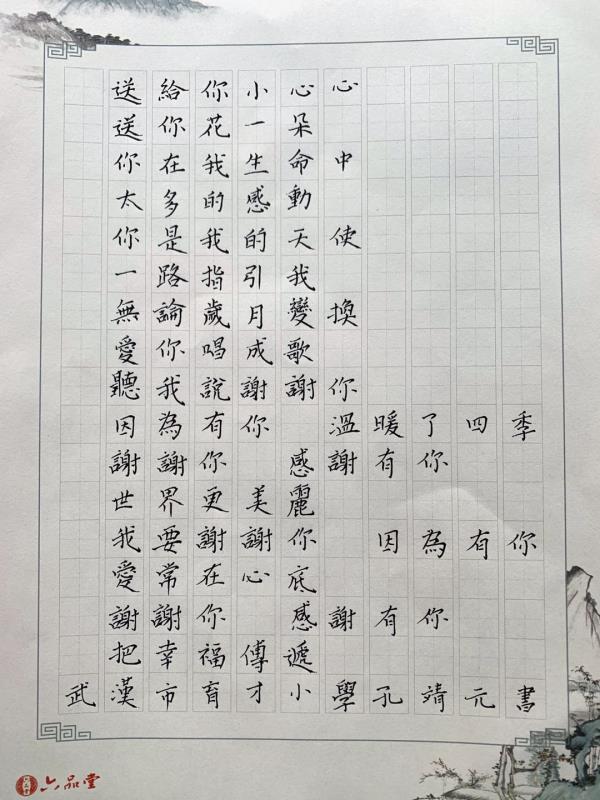 送給你小心心
送你花一朵
你在我生命中
太多的感動
你是我的天使
一路指引我
無論歲月變換
愛你唱成歌
聽我說謝謝你
因為有你 溫暖了四季
謝謝你 感謝有你
世界更美麗
我要謝謝你 因為有你
愛常在心底
謝謝你 感謝有你
把幸福傅遞
武漢市育才小學孔靖元書
六品堂